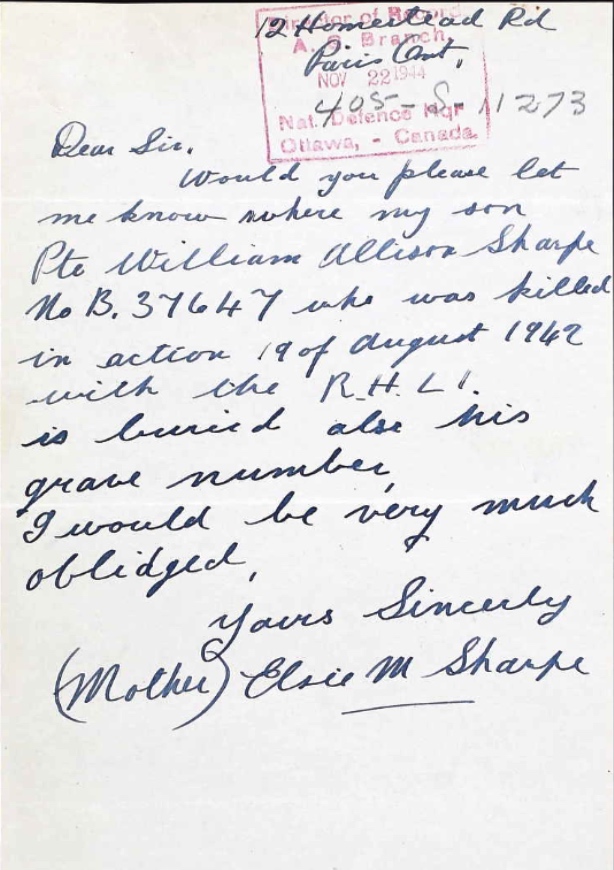 12 Homestead Rd
Director of Records
A. G. Branch,
Paris Ont,
NOV 22 1944
405-S-11273
Nat. Defence Hqr
Ottawa, - Canada.
Dear Sir.
Would you please let
me know where my son
Pte William Allison Sharpe
No B. 37647 who was killed
in action 19 of August 1942
with the R.H.L.I.
is buried also his
grave number,
I would be very much
oblidged,
Yours Sincerly
(Mother) Elsie M Sharpe